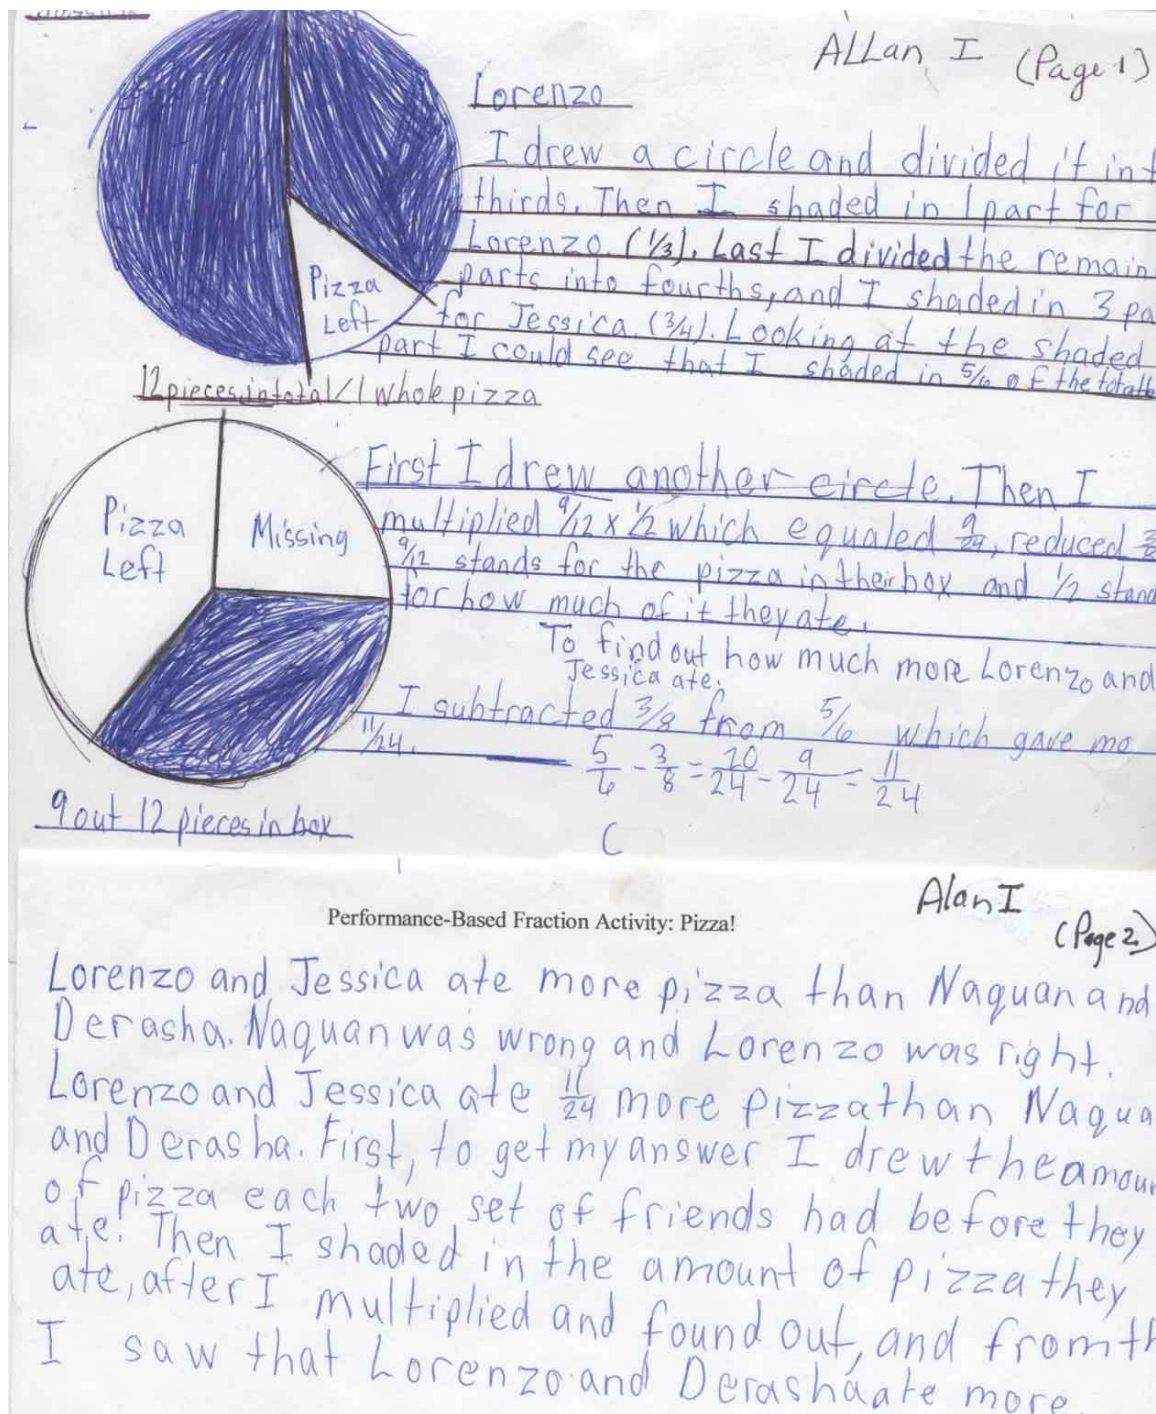 ALLan I (Page 1)
Lorenzo
I drew a circle and divided it int
thirds. Then I shaded in 1 part for
Lorenzo. (1/3). Last I divided the remain
parts into fourths, and I shaded in 3 pa
for Jessica. (3/4). Looking at the shaded
part I could see that I shaded in 5/6 of the
Pizza
Left
12 pieces in total / 1 whole pizza
First I drew another circle. Then I
multiplied 9/12 x 1/2 which equaled 9/24, reduced
9/12 stands for the pizza in their box and 1/2 stand
for how much of it they ate.
To find out how much more Lorenzo and
Jessica ate.
I subtracted 3/8 from 5/6 which gave me
11/24.
5/6 - 3/8 = 20/24 - 9/24 = 11/24
Pizza
Left
Missing
9 out 12 pieces in box
Alan I
(Page 2)
Performance-Based Fraction Activity: Pizza!
Lorenzo and Jessica ate more pizza than Naquan and
Derasha. Naquan was wrong and Lorenzo was right.
Lorenzo and Jessica ate 11/24 more pizza than Naqua
and Derasha. First, to get my answer I drew the amoun
of pizza each two set of friends had before they
ate. Then I shaded in the amount of pizza they
ate, after I multiplied and found out, and from th
I saw that Lorenzo and Derasha ate more.